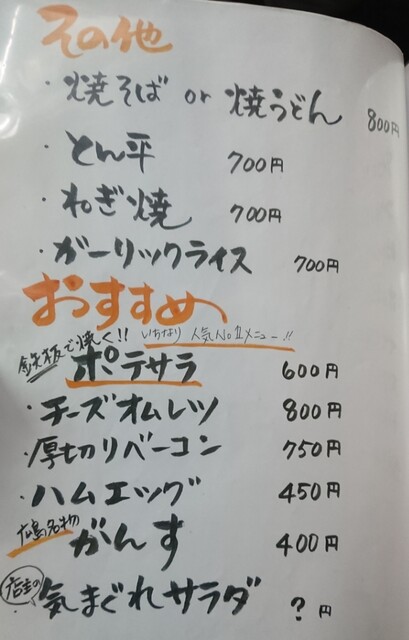 その他
・焼そば or 焼うどん 800円
・とん平 700円
・ねぎ焼 700円
・ガーリックライス 700円
おすすめ
鉄板で焼く!! いちなり 人気No.1メニュー!!
ポテサラ 600円
・チーズオムレツ 800円
・厚切りベーコン 750円
・ハムエッグ 450円
広島名物 がんす 400円
店主の
・気まぐれサラダ ? 円